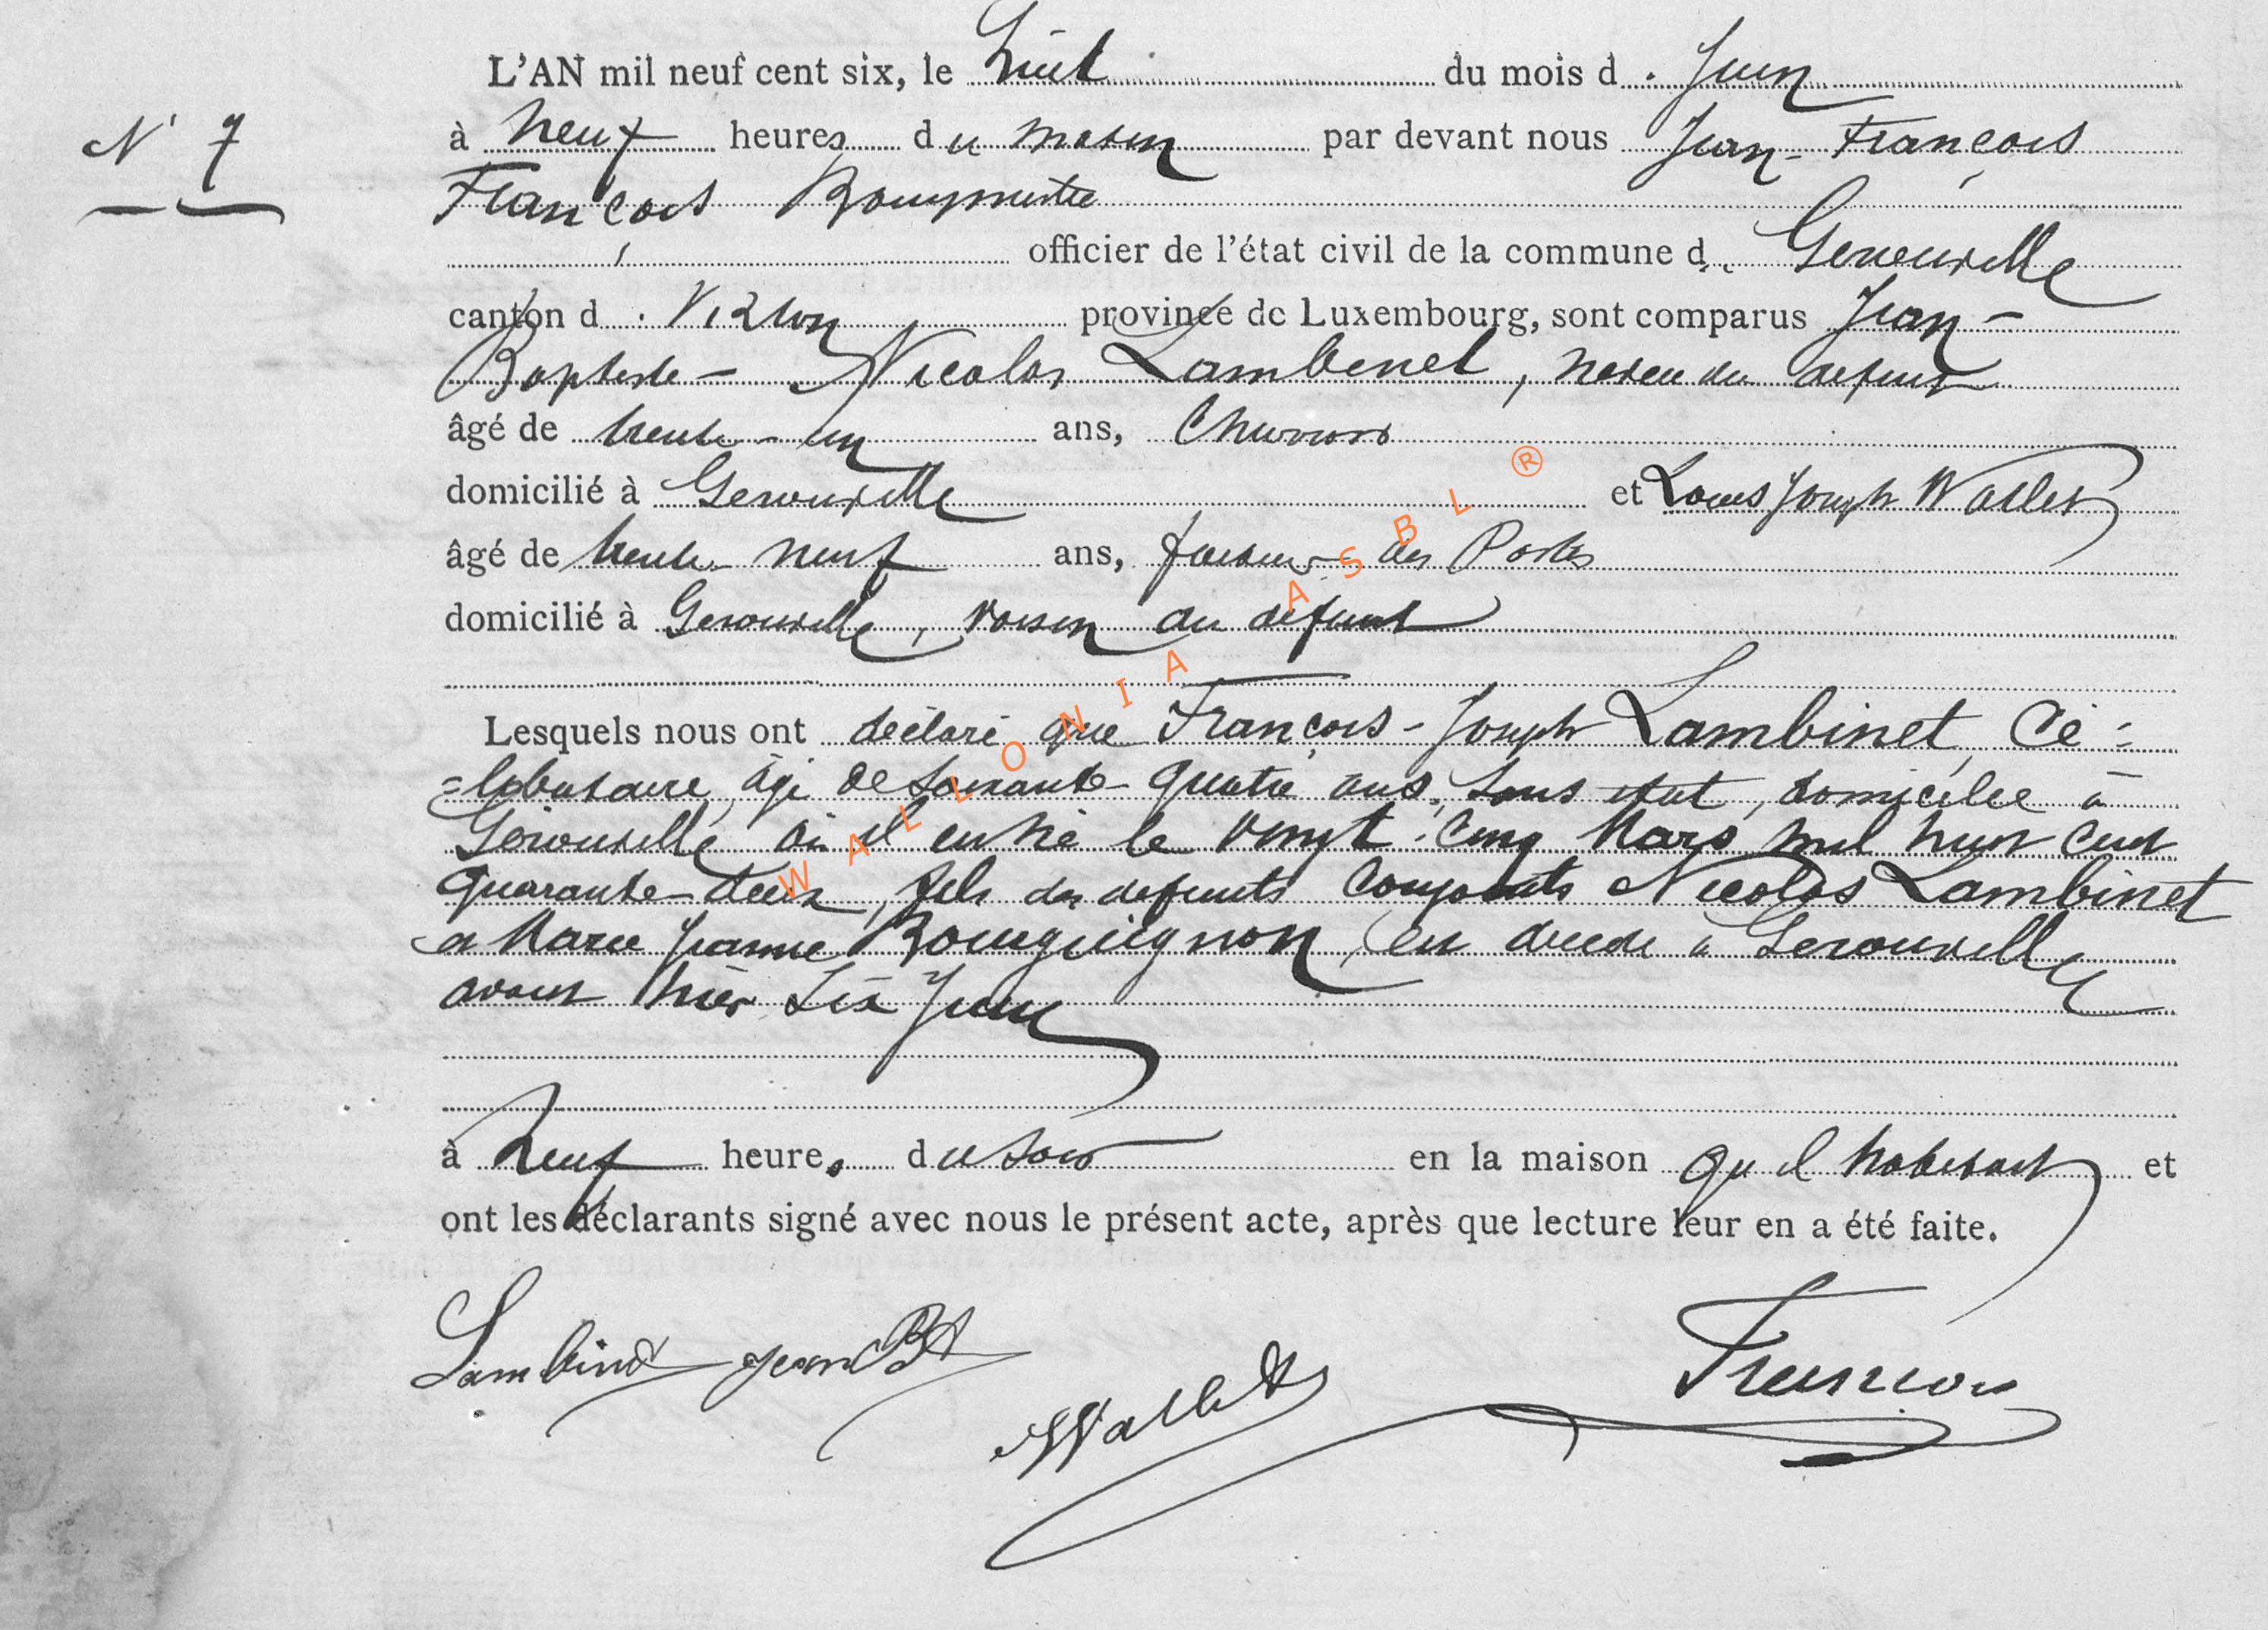 L'AN mil neuf cent six, le huit du mois d. Juin
N° 7
à neuf heures du matin par devant nous Jean-François
François Bourgmestre
officier de l'état civil de la commune d. Gerouville
canton d. Virton province de Luxembourg, sont comparus Jean-
Baptiste-Nicolas Lambinet, neveu du defunt
âgé de trente-un ans, Charron
domicilié à Gerouville et Louis Joseph Wallet
âgé de trente-neuf ans, facteur des Postes
domicilié à Gerouville, voisin du défunt
Lesquels nous ont déclaré que François-Joseph Lambinet, Cé-
=libataire, âgé de soixante-quatre ans, sans état, domicilié à
Gérouville où il est né le vingt-cinq Mars mil huit cent
quarante-deux, fils des defunts conjoints Nicolas Lambinet
et Marie Jeanne Bourguignon, est décédé à Gerouville
avant hier six Juin
à neuf heures du soir en la maison qu'il habitait et
ont les déclarants signé avec nous le présent acte, après que lecture leur en a été faite.
Lambinet Jean Bt
Wallet
WALLONIA ASBL ®